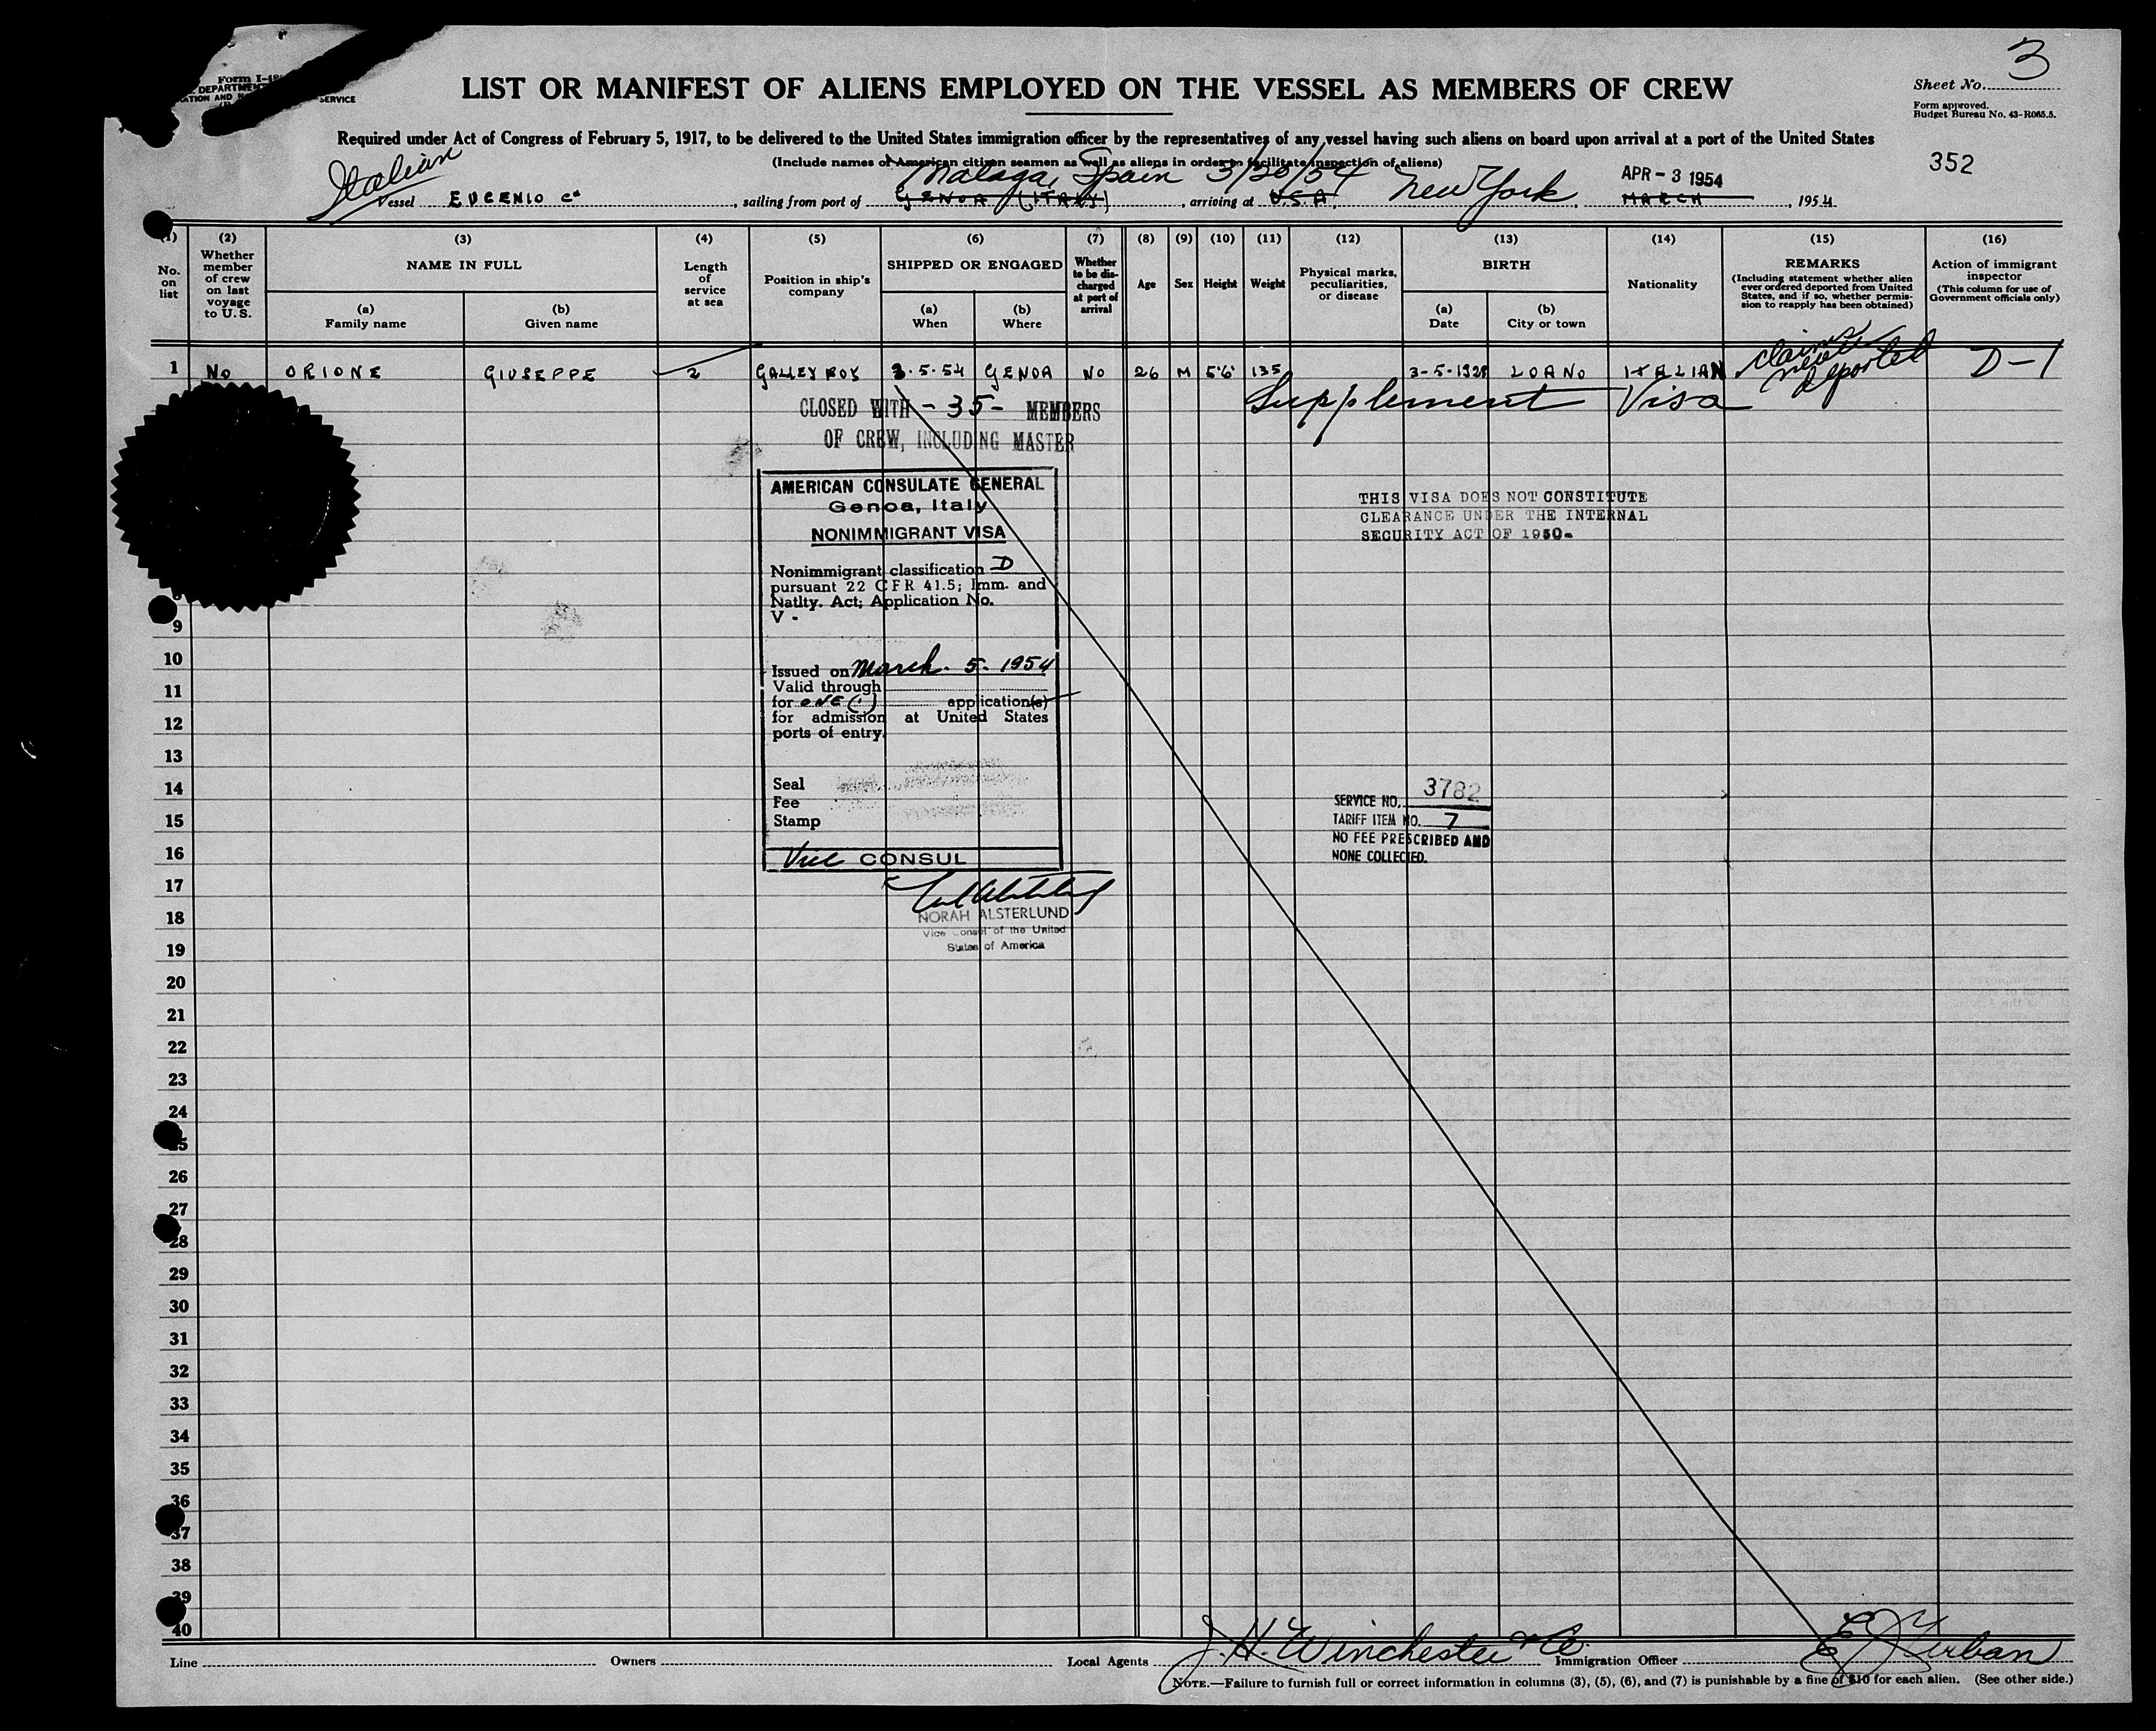 3
Form I-48
DEPARTMENT
ATION AND N SERVICE
LIST OR MANIFEST OF ALIENS EMPLOYED ON THE VESSEL AS MEMBERS OF CREW
Sheet No.
Form approved.
Budget Bureau No. 43-R065.5.
Required under Act of Congress of February 5, 1917, to be delivered to the United States immigration officer by the representatives of any vessel having such aliens on board upon arrival at a port of the United States
(Include names of American citizen seamen as well as aliens in order to facilitate inspection of aliens)
352
Italian Malaga, Spain 3/20/54 New York APR - 3 1954
Vessel EUGENIO Cª, sailing from port of GENOA (ITALY), arriving at U.S.A., MARCH, 1954
(1) (2) (3) (4) (5) (6) (7) (8) (9) (10) (11) (12) (13) (14) (15) (16)
No. on list
Whether member of crew on last voyage to U. S.
NAME IN FULL
(a) Family name
(b) Given name
Length of service at sea
Position in ship's company
SHIPPED OR ENGAGED
(a) When
(b) Where
Whether to be discharged at port of arrival
Age
Sex
Height
Weight
Physical marks, peculiarities, or disease
BIRTH
(a) Date
(b) City or town
Nationality
REMARKS
(Including statement whether alien ever ordered deported from United States, and if so, whether permission to reapply has been obtained)
Action of immigrant inspector
(This column for use of Government officials only)
1 No ORIONE GIUSEPPE 2 GALLEY BOY 3.5.54 GENOA NO 26 M 5'6" 135 3-5-1928 LOANO ITALIAN claims never deported D-1
Supplement Visa
CLOSED WITH - 35 - MEMBERS
OF CREW, INCLUDING MASTER
AMERICAN CONSULATE GENERAL
Genoa, Italy
NONIMMIGRANT VISA
Nonimmigrant classification D
pursuant 22 CFR 41.5; Imm. and
Natlty. Act; Application No.
V -
Issued on March. 5. 1954
Valid through
for ONE (1) application(s)
for admission at United States
ports of entry.
Seal
Fee
Stamp
Vice CONSUL
NORAH ALSTERLUND
Vice Consul of the United
States of America
THIS VISA DOES NOT CONSTITUTE
CLEARANCE UNDER THE INTERNAL
SECURITY ACT OF 1950-
SERVICE NO. 3782
TARIFF ITEM NO. 7
NO FEE PRESCRIBED AND
NONE COLLECTED.
9
10
11
12
13
14
15
16
17
18
19
20
21
22
23
24
25
26
27
28
29
30
31
32
33
34
35
36
37
38
39
40
Line Owners Local Agents J. H. Winchester & Co. Immigration Officer
NOTE.—Failure to furnish full or correct information in columns (3), (5), (6), and (7) is punishable by a fine of $10 for each alien. (See other side.)